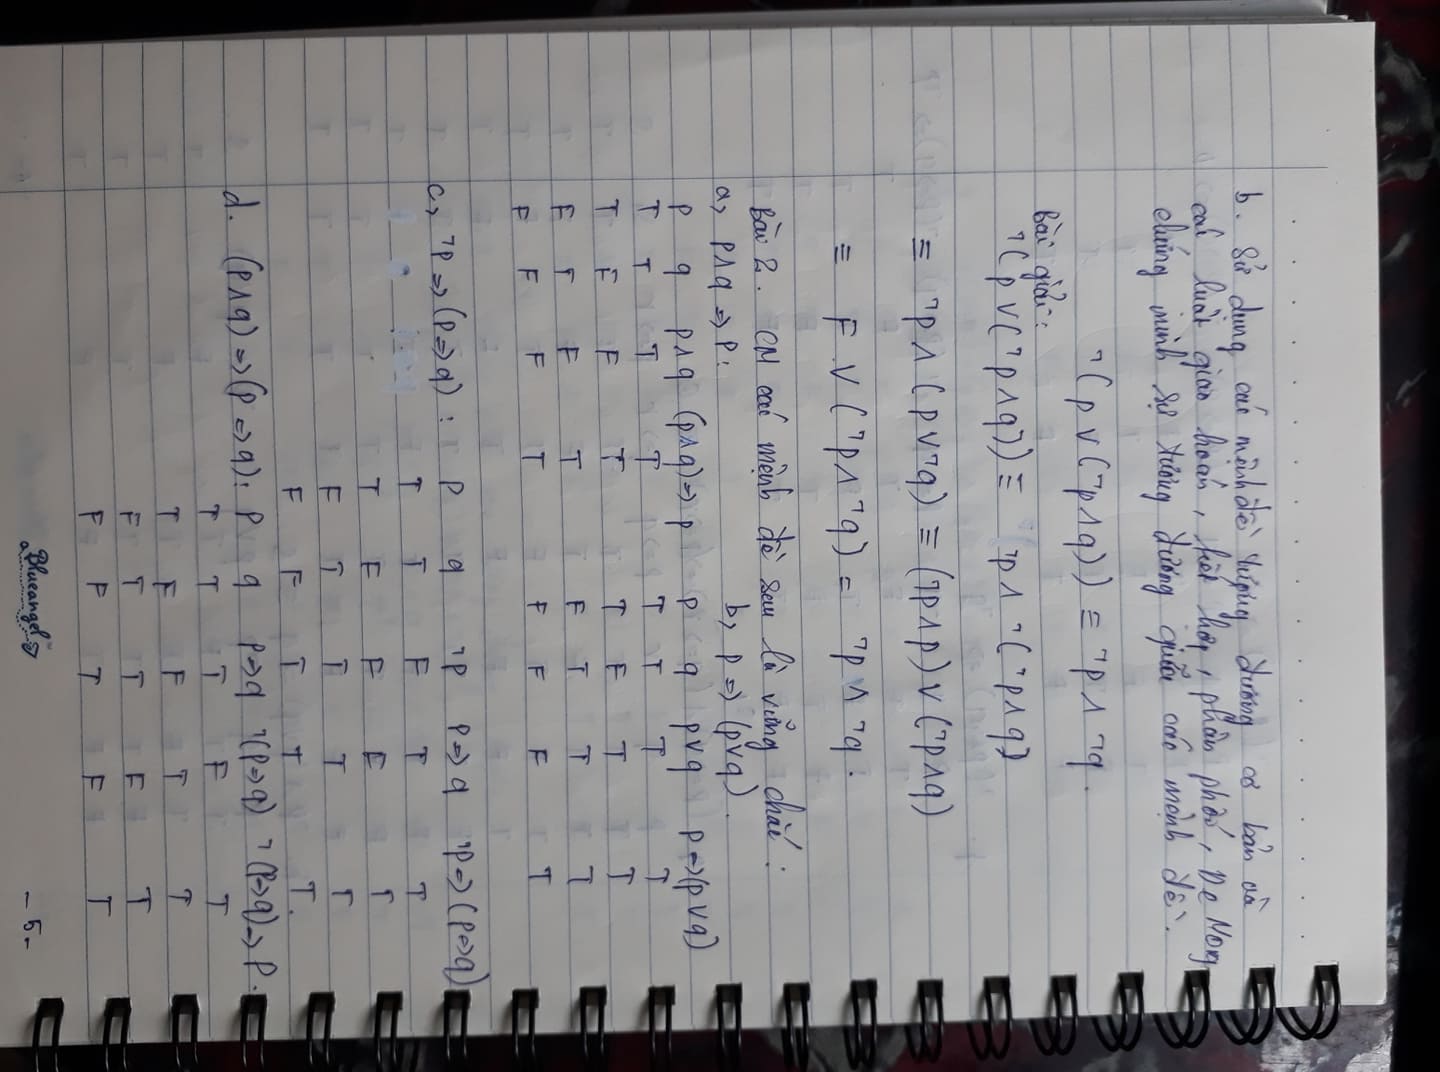 b. Sử dụng các mệnh đề tương đương cơ bản và
các luật giao hoán, kết hợp, phân phối, De Morg
chứng minh sự tương đương giữa các mệnh đề.
¬(p∨(¬p∧q)) ≡ ¬p∧¬q.
Bài giải:
¬(p∨(¬p∧q)) ≡ ¬p∧¬(¬p∧q)
≡ ¬p∧(p∨¬q) ≡ (¬p∧p)∨(¬p∧¬q)
≡ F∨(¬p∧¬q) = ¬p∧¬q.
Bài 2. CM các mệnh đề sau là vững chắc:
a, p∧q => p: b, p=>(p∨q).
p q p∧q (p∧q)=>p p q p∨q p=>(p∨q)
T T T T T T T T
T F F T T F T T
F T F T F T T T
F F F T F F F T
c, ¬p=>(p=>q): p q ¬p p=>q ¬p=>(p=>q)
T T F T T
T F F F T
F T T T T
F F T T T.
d. (p∧q)=>(p=>q): p q p=>q ¬(p=>q) ¬(p=>q)=>p.
T T T F T
T F F T T
F T T F T
F F T F T
Blueangel
- 5 -